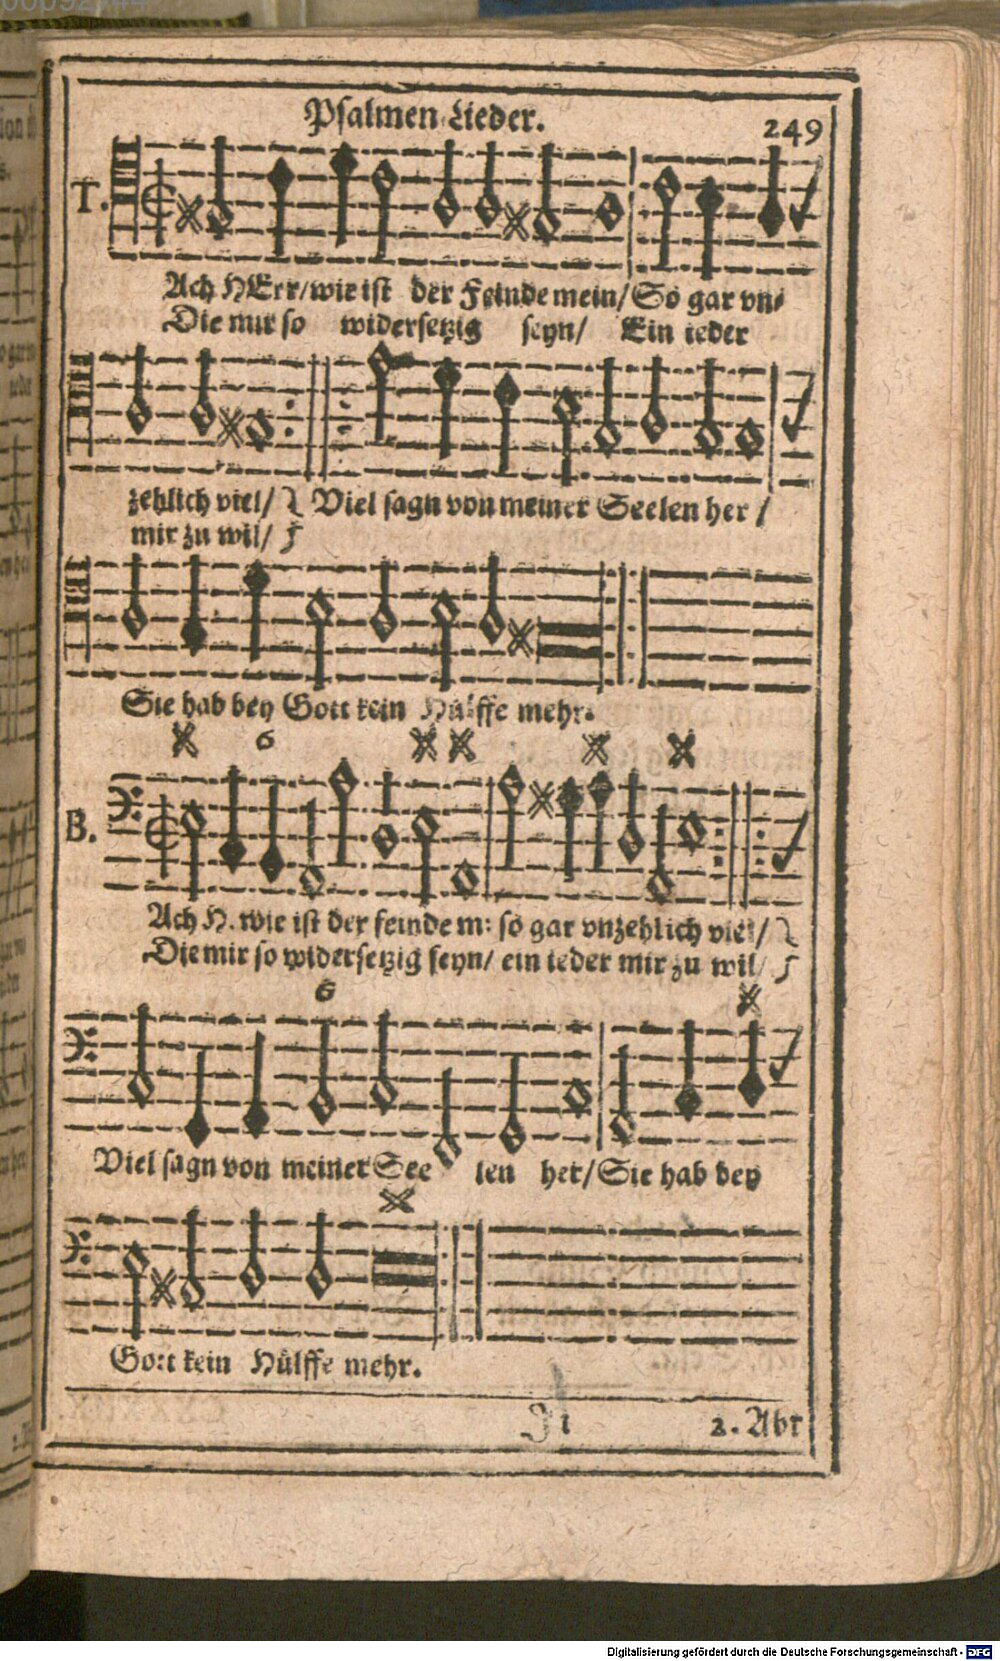 Psalmen-Lieder.
249
T.
Ach HErr/wie ist der Feinde mein/So gar vn-
Die mir so widersetzig seyn/ Ein ieder
zehlich viel/ } Viel sagn von meiner Seelen her/
mir zu wil/ }
Sie hab bey Gott kein Hülffe mehr.
6
B.
Ach H. wie ist der feinde m: so gar vnzehlich viel/ }
Die mir so widersetzig seyn/ ein ieder mir zu wil/ }
6
Viel sagn von meiner See len her/Sie hab bey
Gott kein Hülffe mehr.
2. Abr
Digitalisierung gefördert durch die Deutsche Forschungsgemeinschaft - DFG